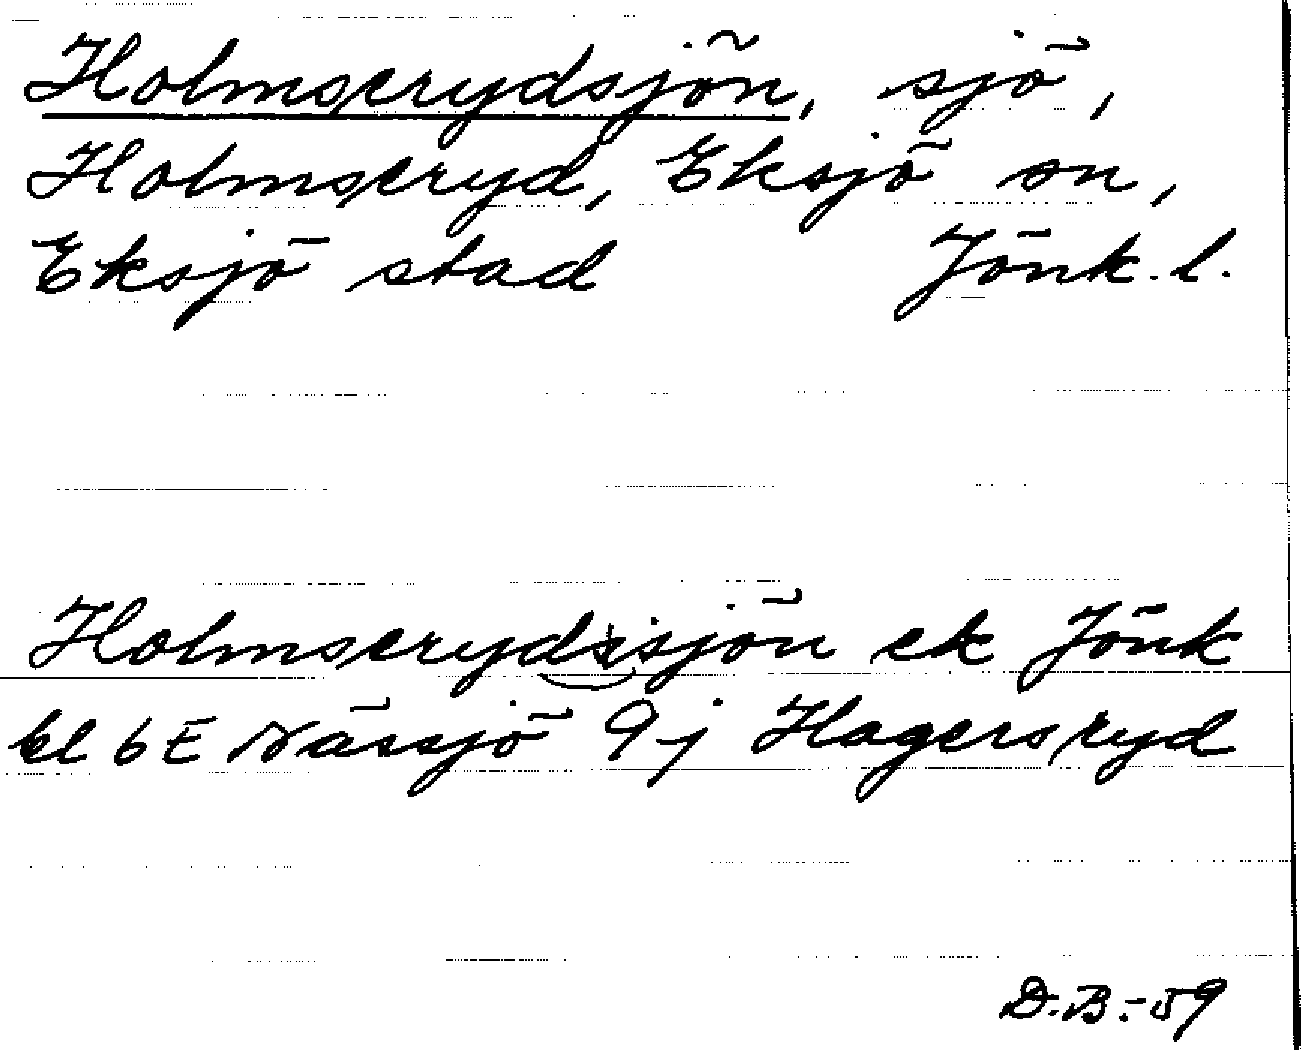 Holmserydsjön, sjö,
Holmseryd, Eksjö sn,
Eksjö stad Jönk. l.
Holmserydssjön ek Jönk
bl 6E Nässjö 9j Hagersryd
D.B.-59